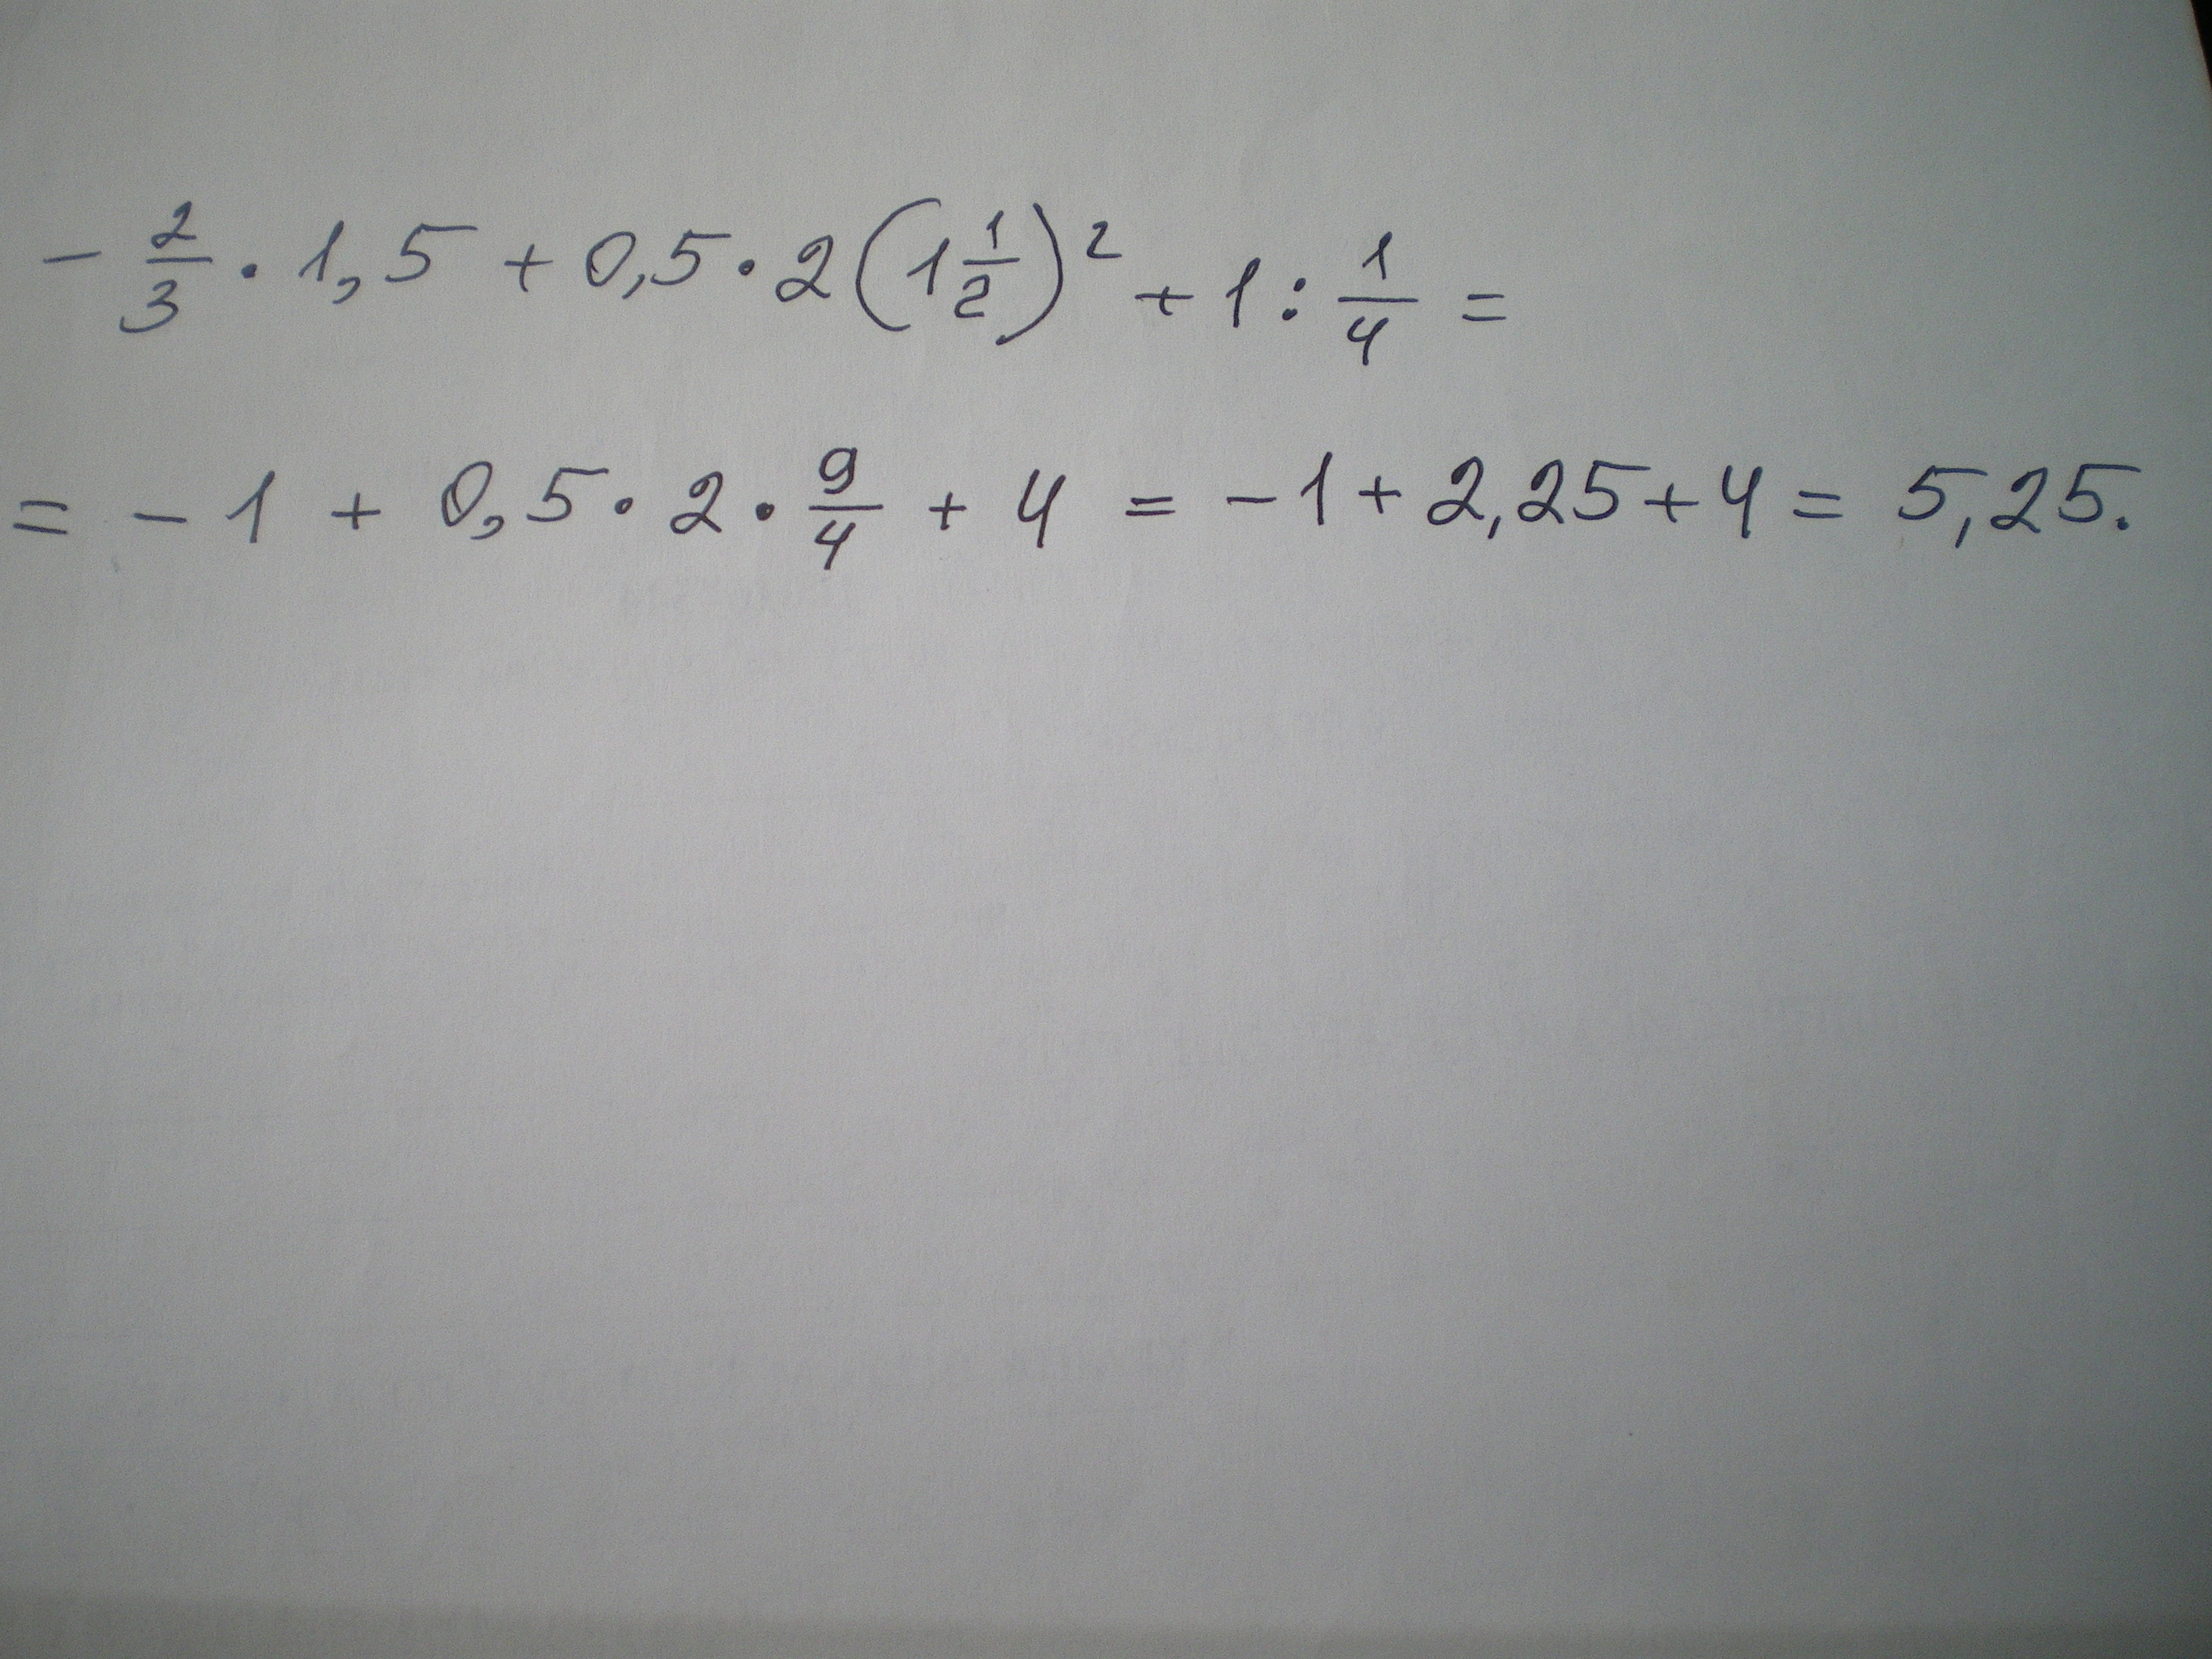 - 2/3 · 1,5 + 0,5 · 2(1 1/2)² + 1 : 1/4 =
= - 1 + 0,5 · 2 · 9/4 + 4 = - 1 + 2,25 + 4 = 5,25.